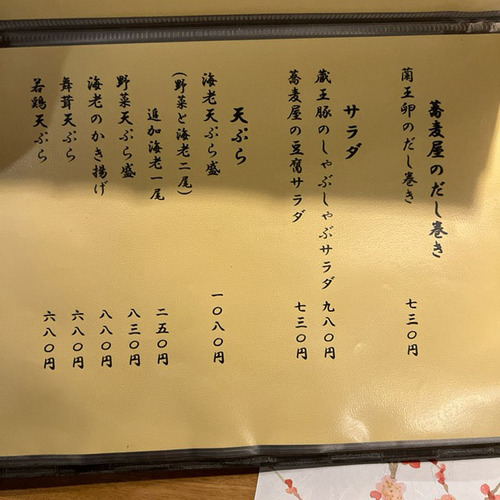 蕎麦屋のだし巻き
蘭王卵のだし巻き 七三〇円
サラダ
蔵王豚のしゃぶしゃぶサラダ 九八〇円
蕎麦屋の豆腐サラダ 七三〇円
天ぷら
海老天ぷら盛 一〇八〇円
(野菜と海老二尾)
追加海老一尾 二五〇円
野菜天ぷら盛 八三〇円
海老のかき揚げ 八八〇円
舞茸天ぷら 六八〇円
若鶏天ぷら 六八〇円